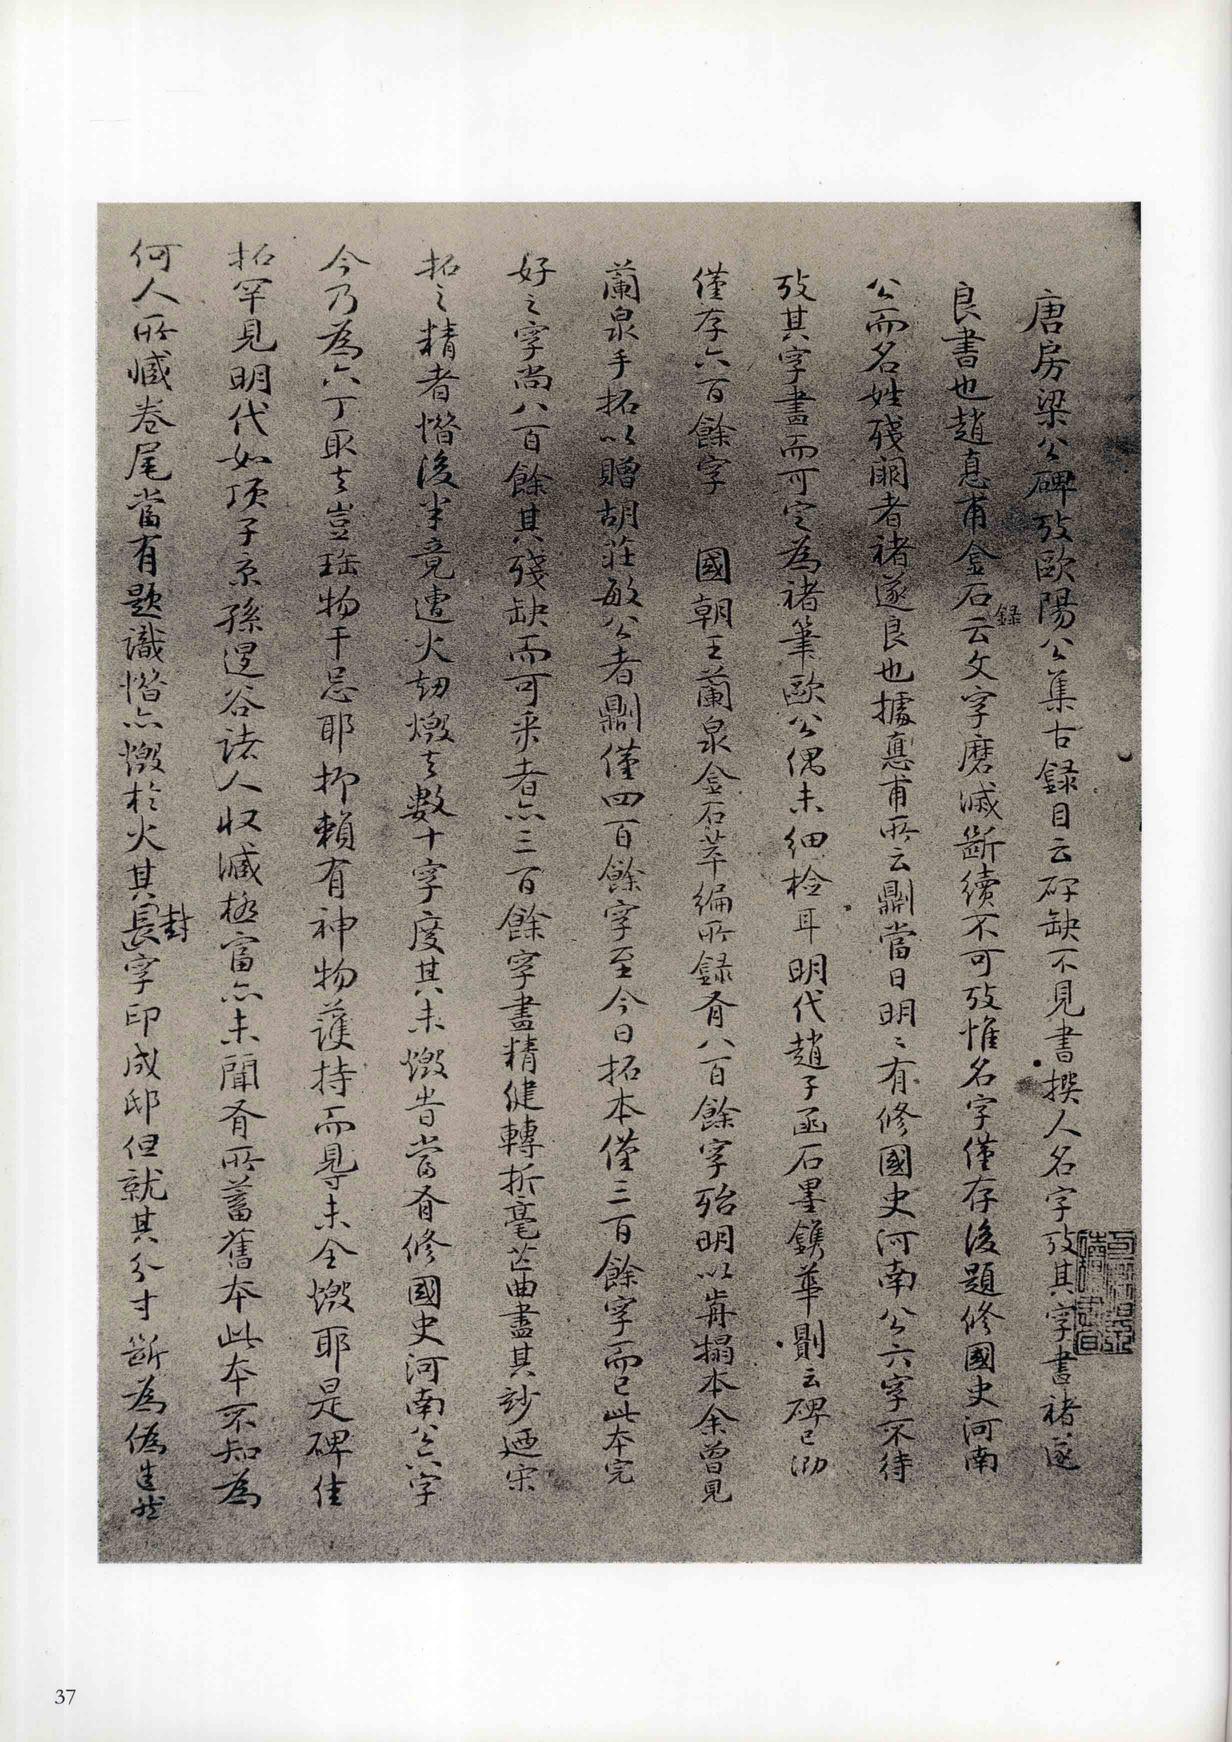 唐房梁公碑攷歐陽公集古録目云碑缺不見書撰人名字攷其字書褚遂
良書也趙惪甫金石録云文字磨滅斷續不可攷惟名字僅存後題修國史河南
公而名姓殘闕者褚遂良也據惪甫所云劘當日明〻有修國史河南公六字不待
攷其字畫而可定為褚筆歐公偶未細檢耳明代趙子函石墨鐫華劘云碑已泐
僅存六百餘字 國朝王蘭泉金石萃編所録有八百餘字殆明以前搨本余曾見
蘭泉手拓以贈胡莊敏公者劘僅四百餘字至今日拓本僅三百餘字而已此本完
好之字尚八百餘其殘缺而可采者亦三百餘字畫精健轉折毫芒曲盡其妙迺宋
拓之精者惜後半竟遭火劫燬去數十字度其未燬昔當有修國史河南公六字
今乃為六丁取去豈珤物干忌耶抑賴有神物護持而得未全燬耶是碑佳
拓罕見明代如項子京孫退谷諸人收藏極富亦未聞有所蓄舊本此本不知為
何人所臧卷尾當有題識惜亦燬於火其長字印成邸但就其分寸斷為偽造然
封